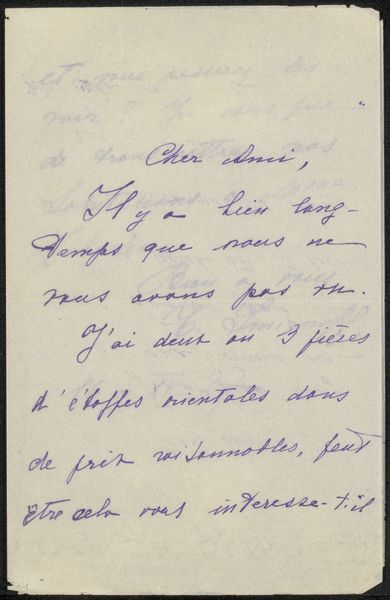 Cher Ami,
Il y a bien long-
temps que nous ne
vous avons pas vu.
J'ai deux ou 3 pièces
d'étoffes orientales dans
de prix raisonnables, peut
être cela vous interesse-t-il